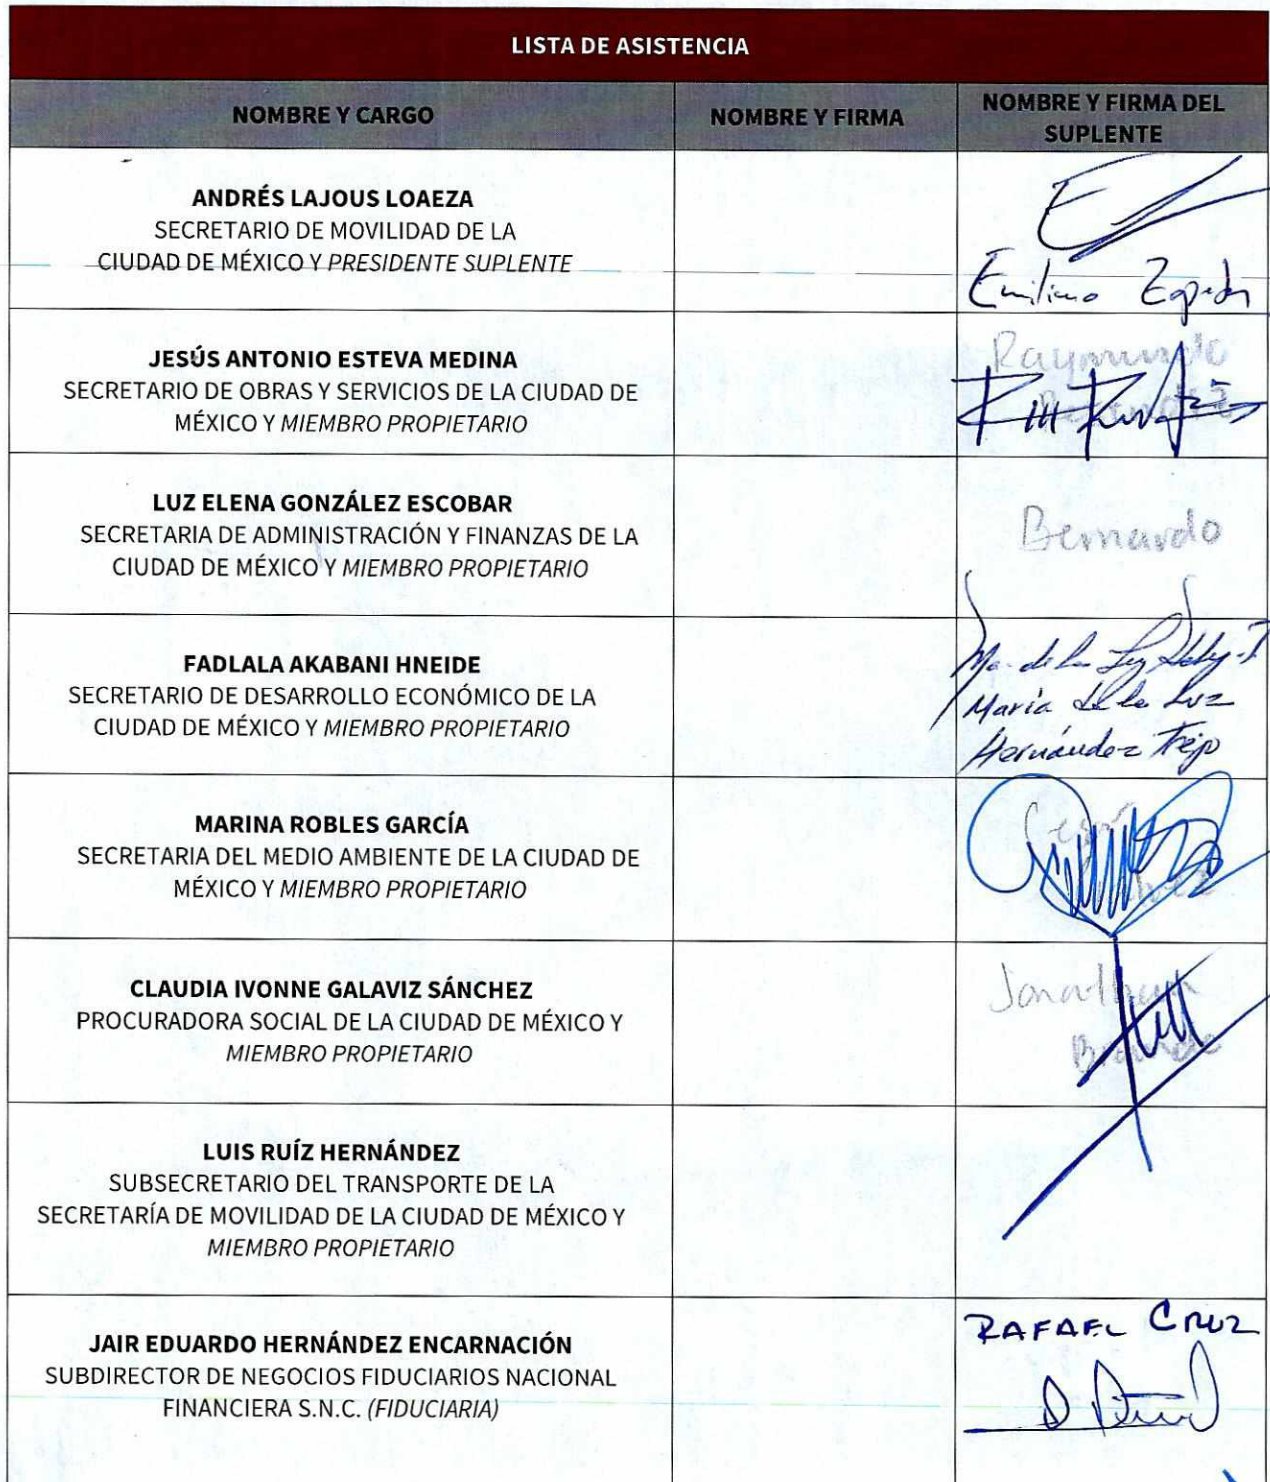 LISTA DE ASISTENCIA
NOMBRE Y CARGO
NOMBRE Y FIRMA
NOMBRE Y FIRMA DEL
SUPLENTE
ANDRÉS LAJOUS LOAEZA
SECRETARIO DE MOVILIDAD DE LA
CIUDAD DE MÉXICO Y PRESIDENTE SUPLENTE
Emiliano Zepeda
JESÚS ANTONIO ESTEVA MEDINA
SECRETARIO DE OBRAS Y SERVICIOS DE LA CIUDAD DE
MÉXICO Y MIEMBRO PROPIETARIO
Raymundo
LUZ ELENA GONZÁLEZ ESCOBAR
SECRETARIA DE ADMINISTRACIÓN Y FINANZAS DE LA
CIUDAD DE MÉXICO Y MIEMBRO PROPIETARIO
Bernardo
FADLALA AKABANI HNEIDE
SECRETARIO DE DESARROLLO ECONÓMICO DE LA
CIUDAD DE MÉXICO Y MIEMBRO PROPIETARIO
Ma. de la Luz
María de la Luz
Hernández Trejo
MARINA ROBLES GARCÍA
SECRETARIA DEL MEDIO AMBIENTE DE LA CIUDAD DE
MÉXICO Y MIEMBRO PROPIETARIO
CLAUDIA IVONNE GALAVIZ SÁNCHEZ
PROCURADORA SOCIAL DE LA CIUDAD DE MÉXICO Y
MIEMBRO PROPIETARIO
Jonathan
LUIS RUÍZ HERNÁNDEZ
SUBSECRETARIO DEL TRANSPORTE DE LA
SECRETARÍA DE MOVILIDAD DE LA CIUDAD DE MÉXICO Y
MIEMBRO PROPIETARIO
JAIR EDUARDO HERNÁNDEZ ENCARNACIÓN
SUBDIRECTOR DE NEGOCIOS FIDUCIARIOS NACIONAL
FINANCIERA S.N.C. (FIDUCIARIA)
RAFAEL CRUZ